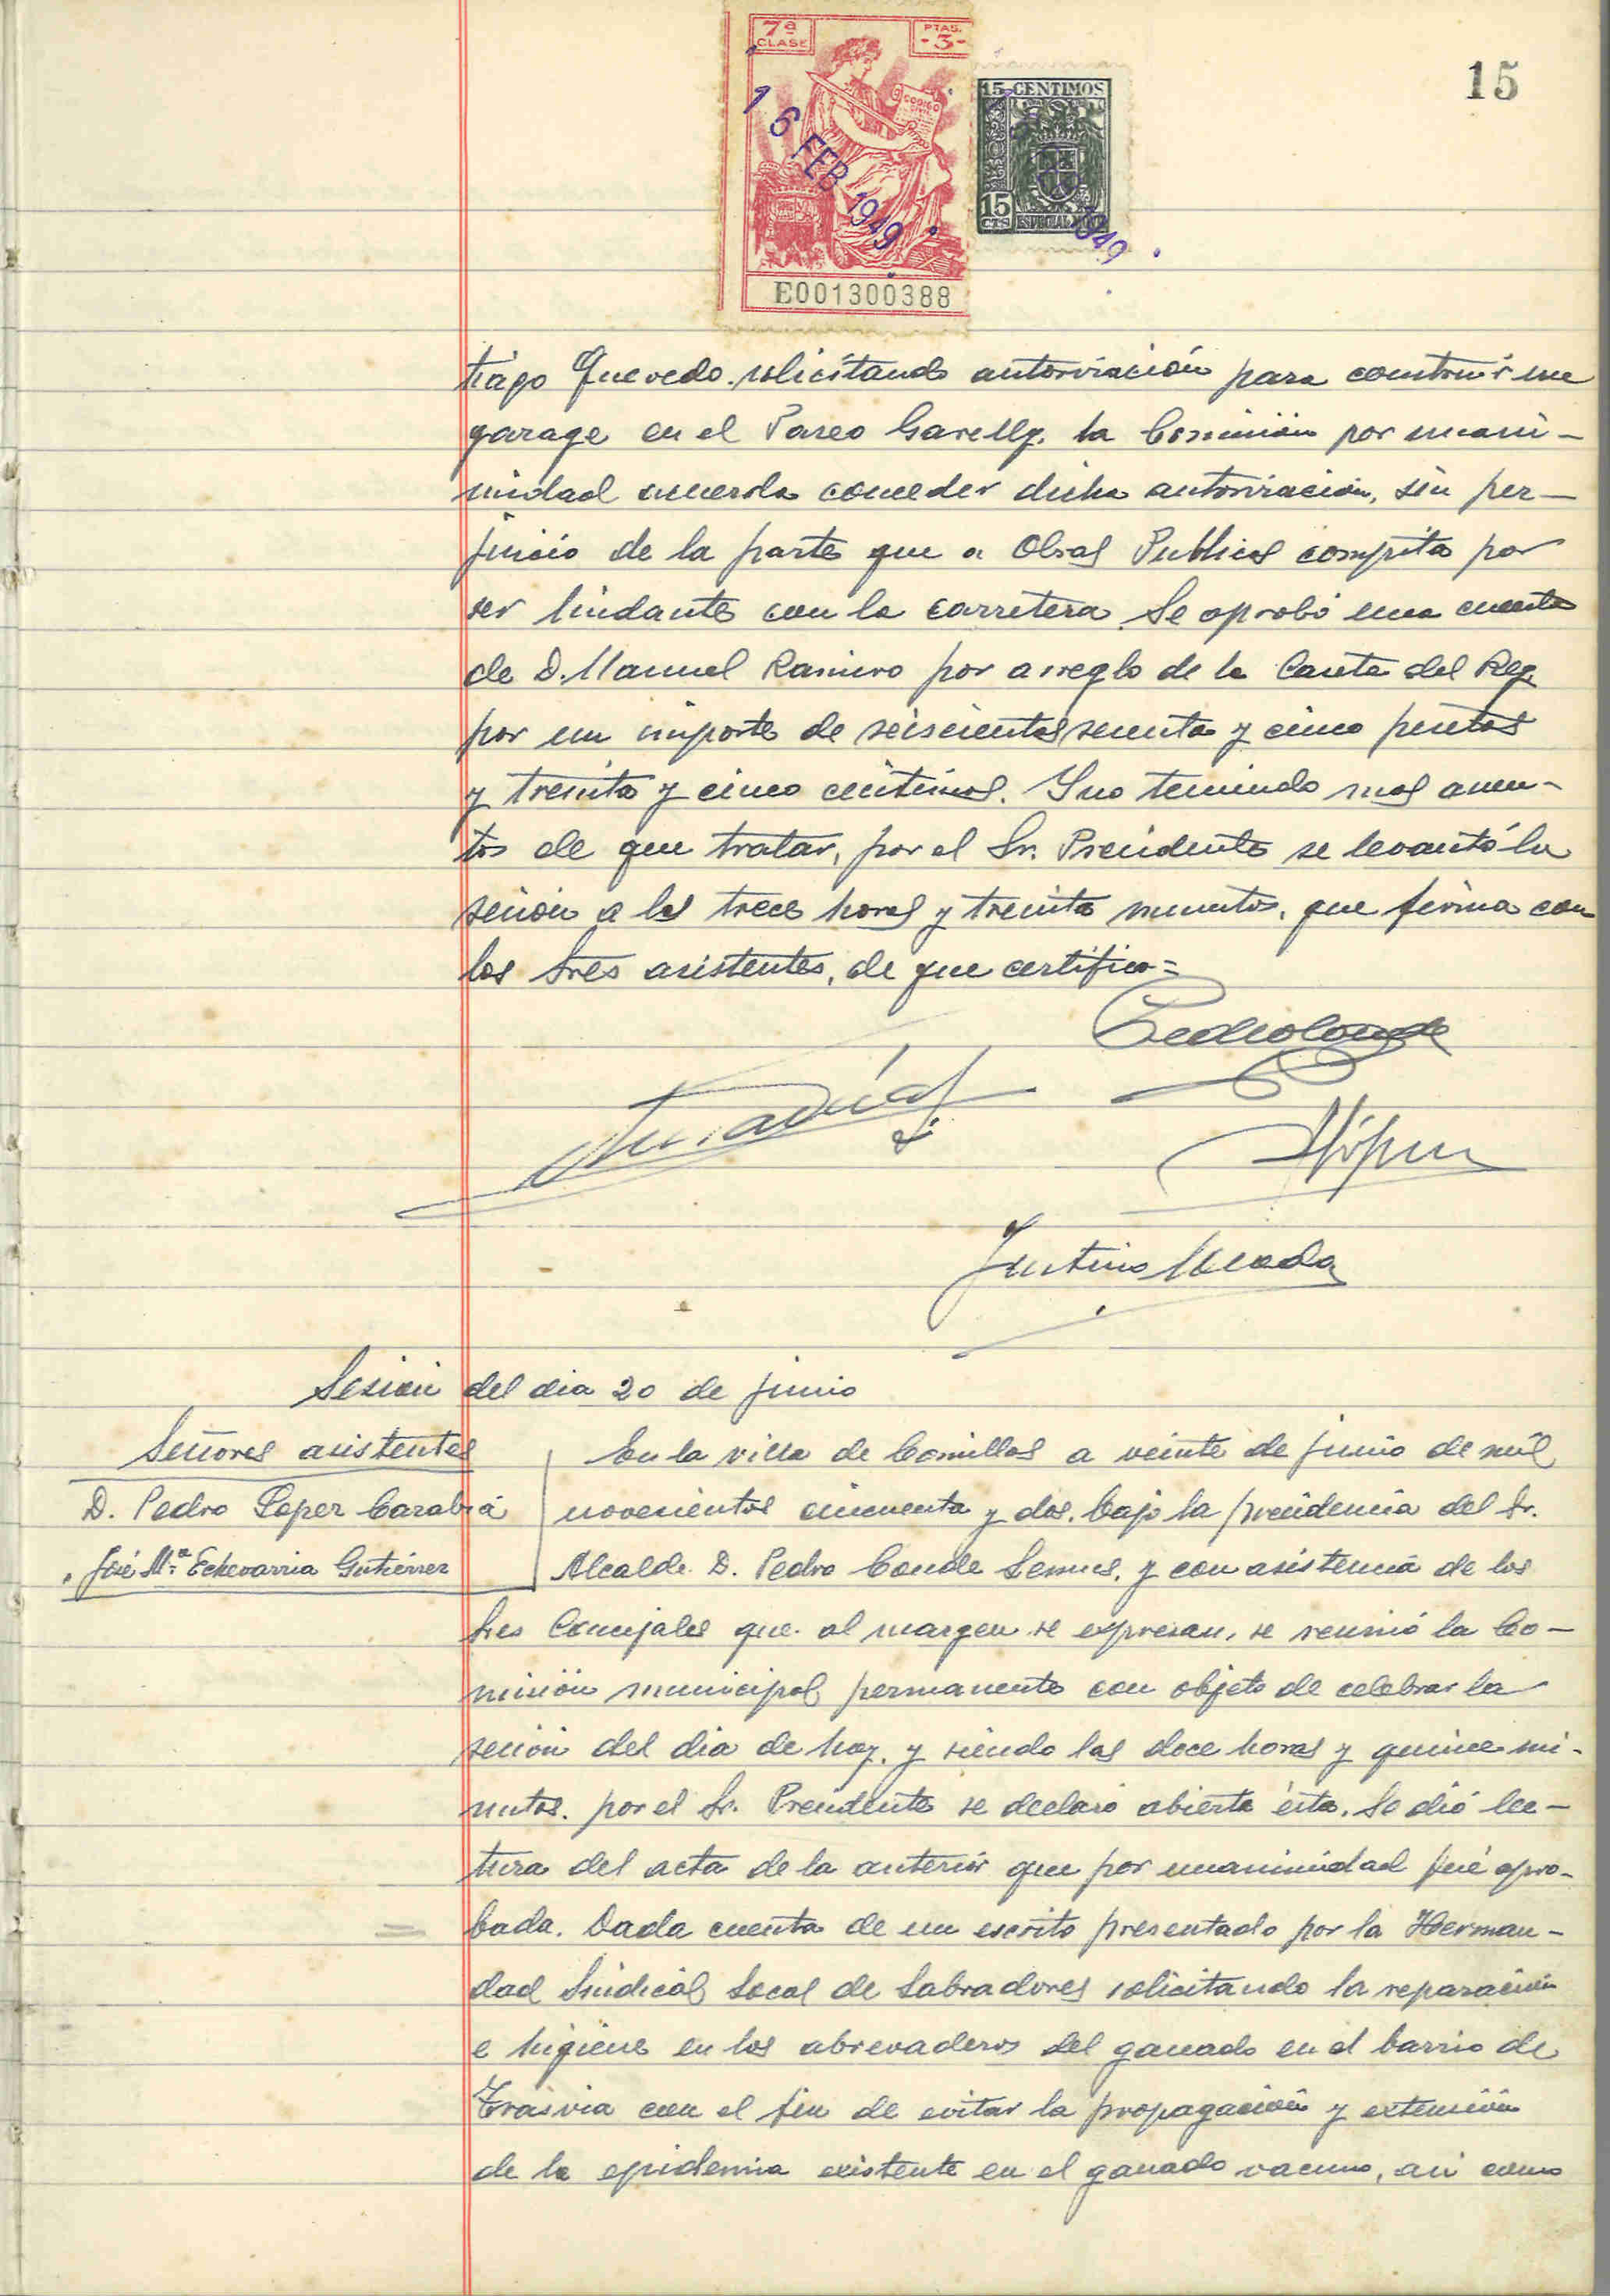 7ª CLASE
PTAS. -3-
CODIGO
16 FEB 1949
E001300388
15 CENTIMOS
15 CTS ESPECIAL
1949
15
tiago Quevedo solicitando autorización para construir un
garage en el Paseo Garelly. la Comisión por unani-
midad acuerda conceder dicha autorización, sin per-
juicio de la parte que a Obras Publicas compita por
ser lindante con la carretera. Se aprobó una cuenta
de D. Manuel Ramiro por arreglo de la Caseta del Reg.
por un importe de seiscientas senenta y cinco pesetas
y treinta y cinco centimos. Y no teniendo mas asun-
tos de que tratar, por el Sr. Presidente se levantó la
sesión a las trece horas y treinta minutos, que firma con
los Sres asistentes, de que certifico=
Pedro Conde
PLópez
Justino
Sesión del dia 20 de junio
Señores asistentes
D. Pedro Lopez Carabia
" José Mª Echevarria Gutierrez
En la villa de Comillas a veinte de junio de mil
novecientos cincuenta y dos, bajo la presidencia del Sr.
Alcalde D. Pedro Conde y con asistencia de los
Sres Concejales que al margen se expresan, se reunió la Co-
misión municipal permanente con objeto de celebrar la
sesión del dia de hoy, y siendo las doce horas y quince mi-
nutos, por el Sr. Presidente se declaró abierta ésta. Se dió lec-
tura del acta de la anterior que por unanimidad fué apro-
bada. Dada cuenta de un escrito presentado por la Herman-
dad Sindical Local de Labradores solicitando la reparación
e higiene en los abrevaderos del ganado en el barrio de
Trasvia con el fin de evitar la propagación y extensión
de la epidemia existente en el ganado vacuno, asi como